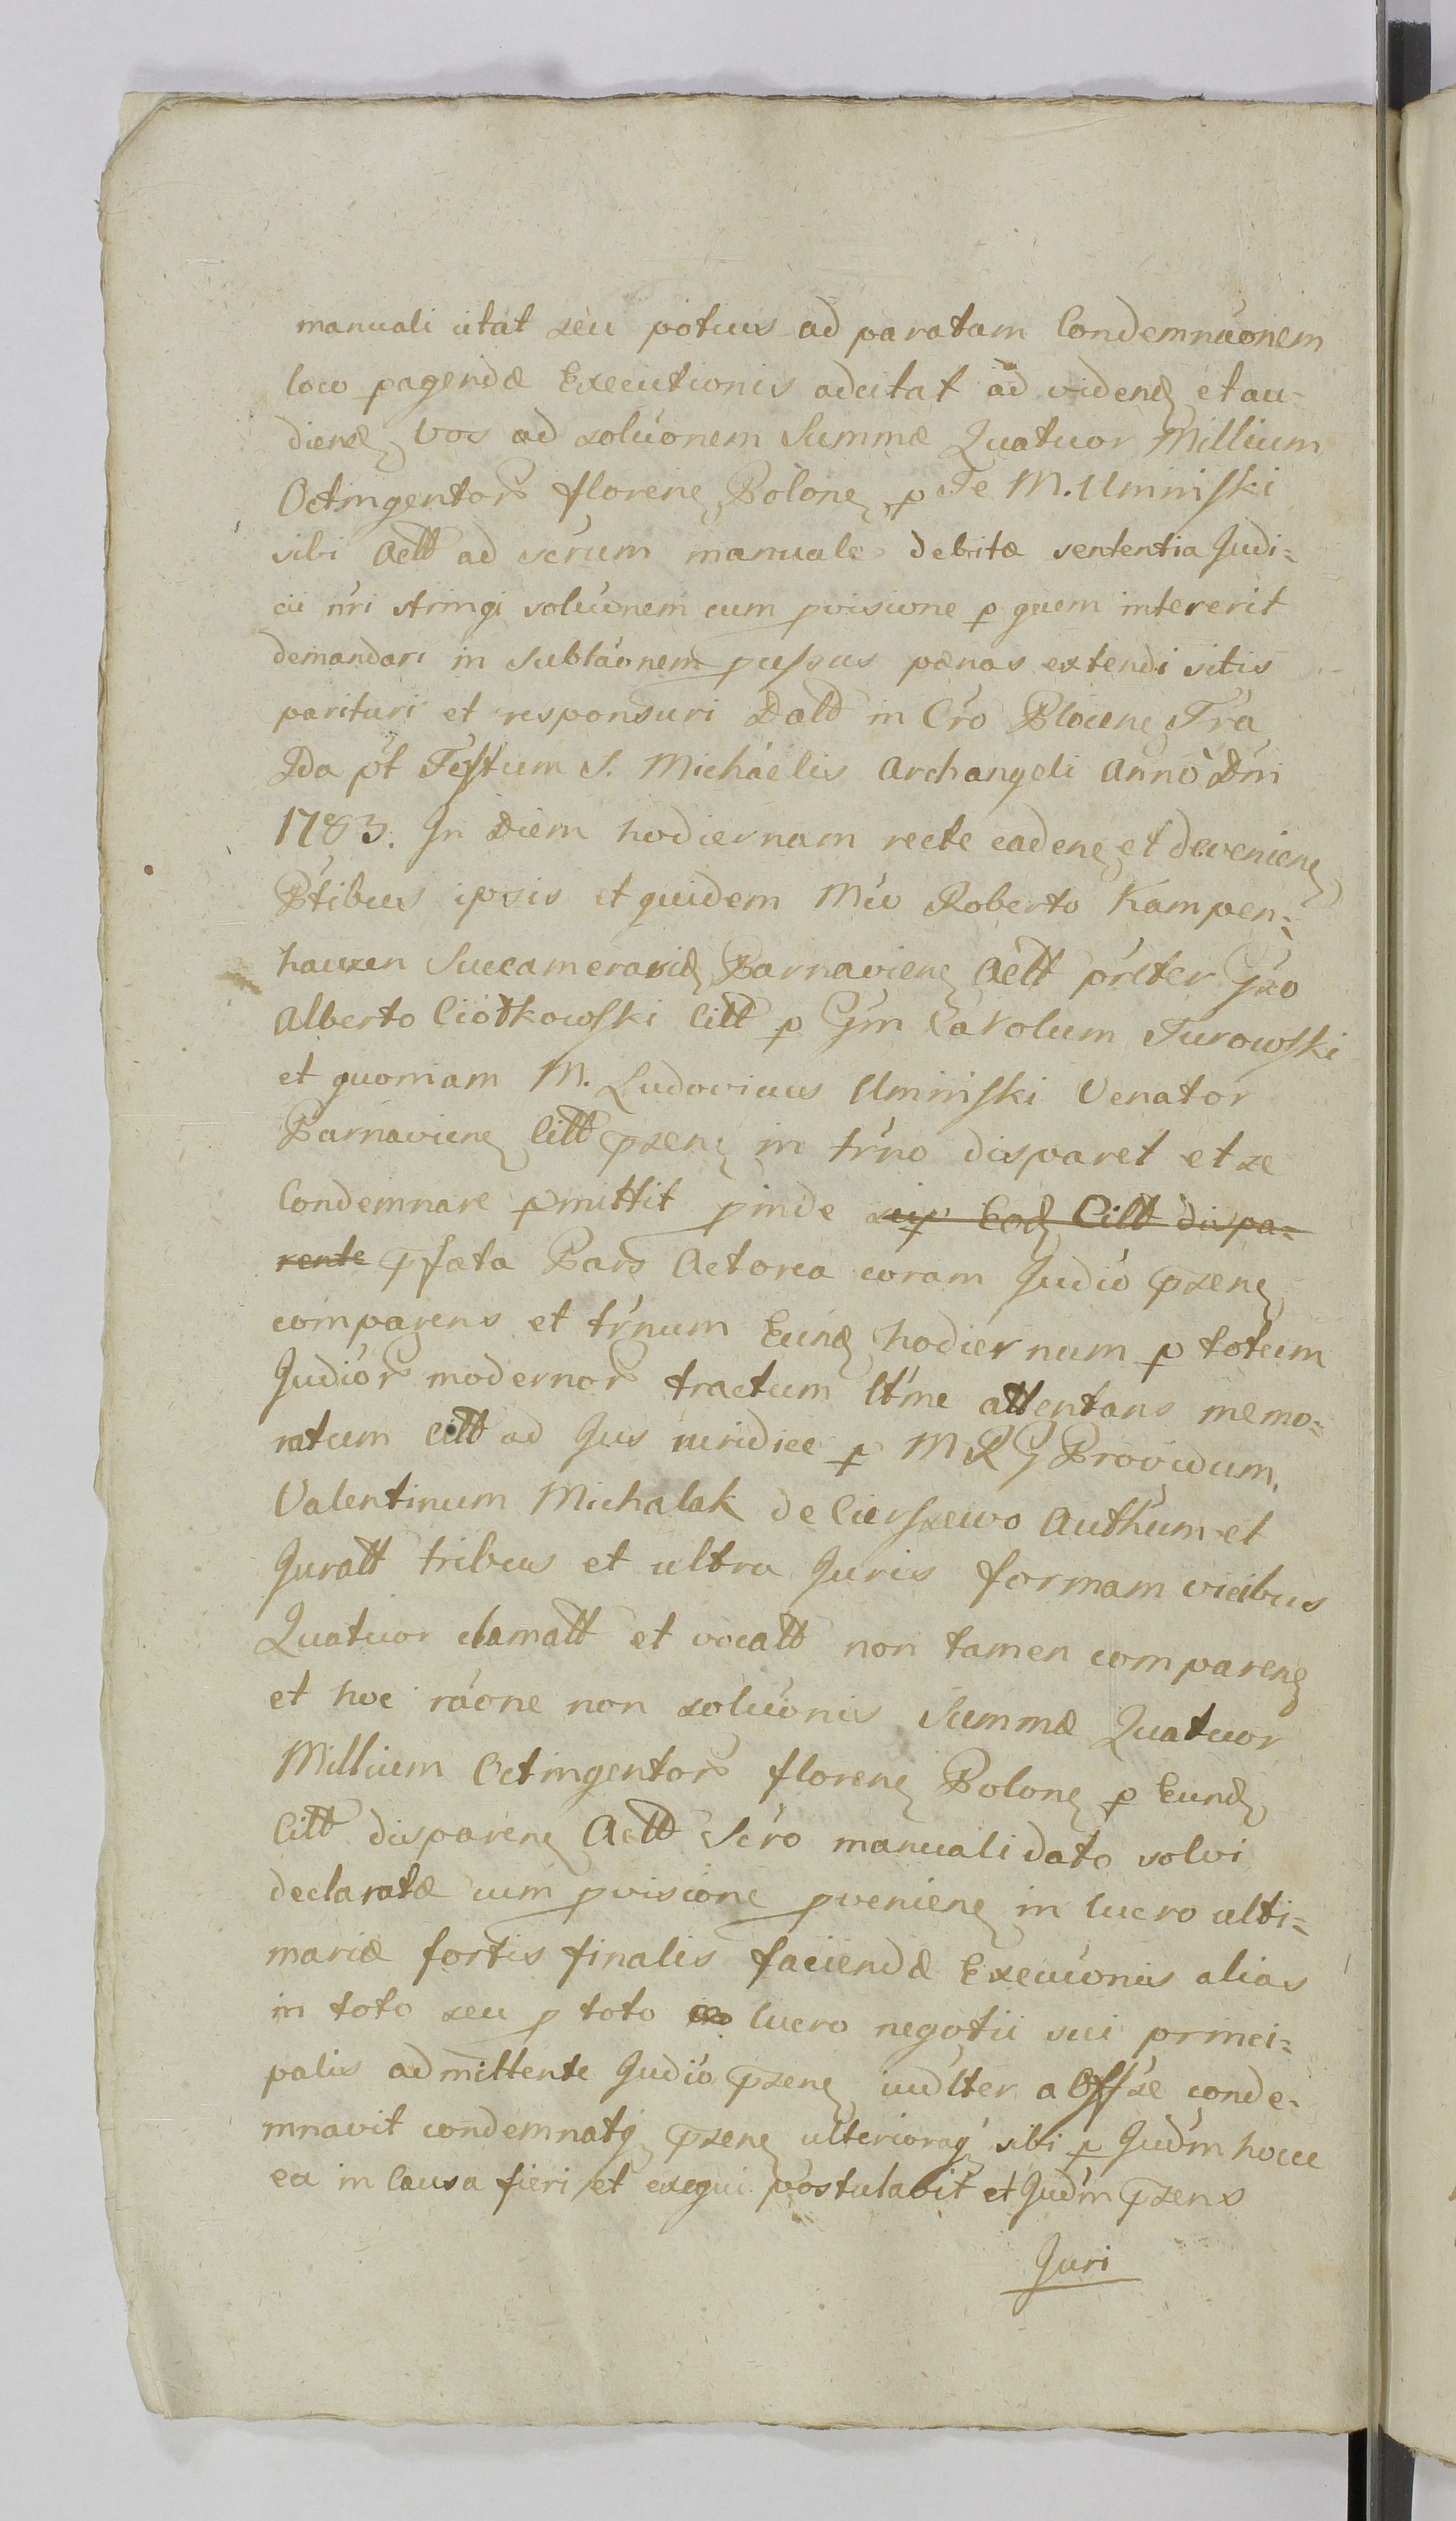 manuali citat seu potius ad paratam Condemnáonem
loco pagendæ Executionis adcitat ad videnđ et au-
dienđ Vos ad solúonem Summæ Quatuor Millium
Octingentor florenꝫ Polonꝫ p Te M. Uminſki
sibi Actt ad scrum manuale debitæ sententia Judi=
cii nri stringi solúonem cum pvisione p quem intererit
demandari in sublaónem puſsus pænas extendi sitis
parituri et responsuri Datt in Cro Plocenꝫ Fra
2da pt Feſtum S. Michaelis Archangeli Anno Dni
1783. In Diem hodiernam recte cadenꝫ et devenienꝫ
Ptibus ipsis et quidem Mco Roberto Kampen=
hauzen Succamerarid Parnavienꝫ Actt prter Gso
Alberto Ciotkowſki Citt p Gm Carolum Turowſki
et quoniam M. Ludovicus Uminſki Venator
Parnavienꝫ Citt pzenꝫ in trno disparet et se
Condemnare pmittit pinde sup Eođ Citt dispa=
rente pfæta Pars Actorea coram Judio pzenꝫ
comparens et trnum Eunđ hodiernum p totum
Judior modernor tractum ltme attentans memo=
ratum Citt ad Jus iuridice p M R G Providum
Valentinum Michalak de Cierſzewo Authum et
Juratt tribus et ultra Juris formam vicibus
Quatuor clamatt et vocatt non tamen comparenꝫ
et hoc raóne non solúonis Summæ Quatuor
Millium Octingentor florenꝫ Polonꝫ p Eunđ
Citt disparenꝫ Actt Scro manuali dato solvi
declaratæ cum pvisione pvenienꝫ in lucro ulti=
mariæ fortis finalis faciendæ Execúonis alias
in toto seu p toto lucro negotii sui princi=
palis admittente Judio pzenꝫ iudlter a Offze conde-
mnavit condemnatq pzenꝫ ulterioraq sibi p Judm hocce
ea in Causa fieri et exequi postulavit et Judm pzens
Juri